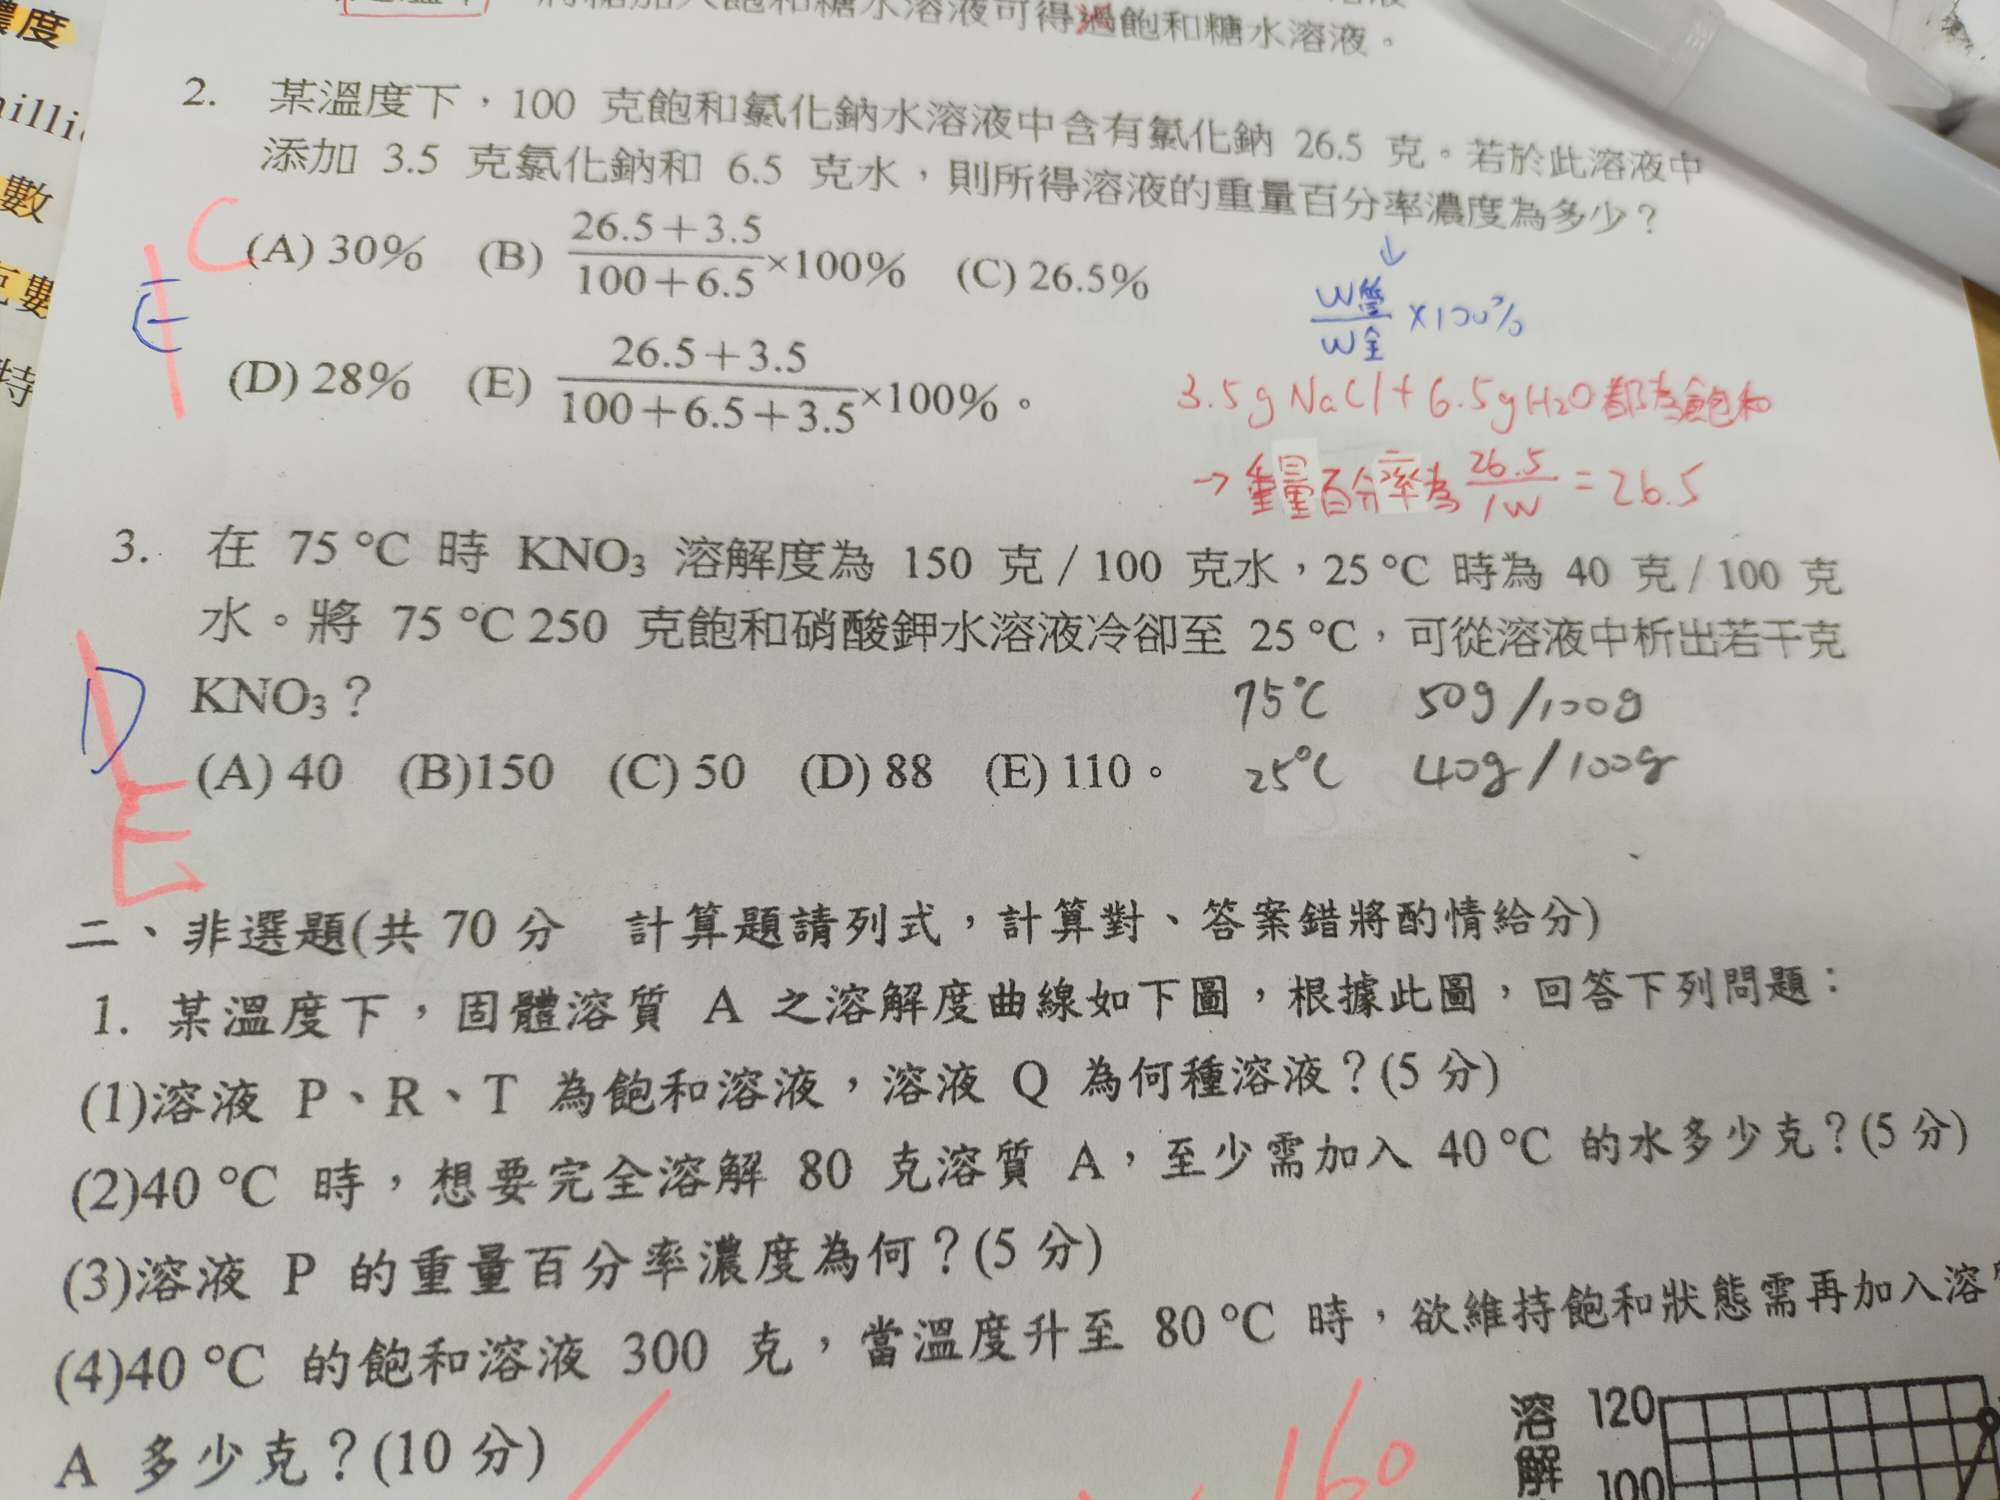 濃度
數
克數
將糖加入飽和糖水溶液可得過飽和糖水溶液。
2. 某溫度下，100 克飽和氯化鈉水溶液中含有氯化鈉 26.5 克。若於此溶液中
添加 3.5 克氯化鈉和 6.5 克水，則所得溶液的重量百分率濃度為多少？
C
E
(A) 30% (B) (26.5+3.5)/(100+6.5)×100% (C) 26.5%
(D) 28% (E) (26.5+3.5)/(100+6.5+3.5)×100%。
↓
W質/W全 ×100%
3.5g NaCl + 6.5g H₂O 都為飽和
→ 重量百分率為 26.5/100 = 26.5
3. 在 75 °C 時 KNO₃ 溶解度為 150 克 / 100 克水，25 °C 時為 40 克 / 100 克
水。將 75 °C 250 克飽和硝酸鉀水溶液冷卻至 25 °C，可從溶液中析出若干克
KNO₃？
75°C 50g/100g
D
(A) 40 (B)150 (C) 50 (D) 88 (E) 110。
25°C 40g/100g
E
二、非選題(共 70 分 計算題請列式，計算對、答案錯將酌情給分)
1. 某溫度下，固體溶質 A 之溶解度曲線如下圖，根據此圖，回答下列問題：
(1)溶液 P、R、T 為飽和溶液，溶液 Q 為何種溶液？(5 分)
(2)40 °C 時，想要完全溶解 80 克溶質 A，至少需加入 40 °C 的水多少克？(5 分)
(3)溶液 P 的重量百分率濃度為何？(5 分)
(4)40 °C 的飽和溶液 300 克，當溫度升至 80 °C 時，欲維持飽和狀態需再加入溶
A 多少克？(10 分)
160
溶解
120
100